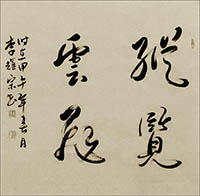 縱覽
雲飛
時在甲午年春月
李耀宗書